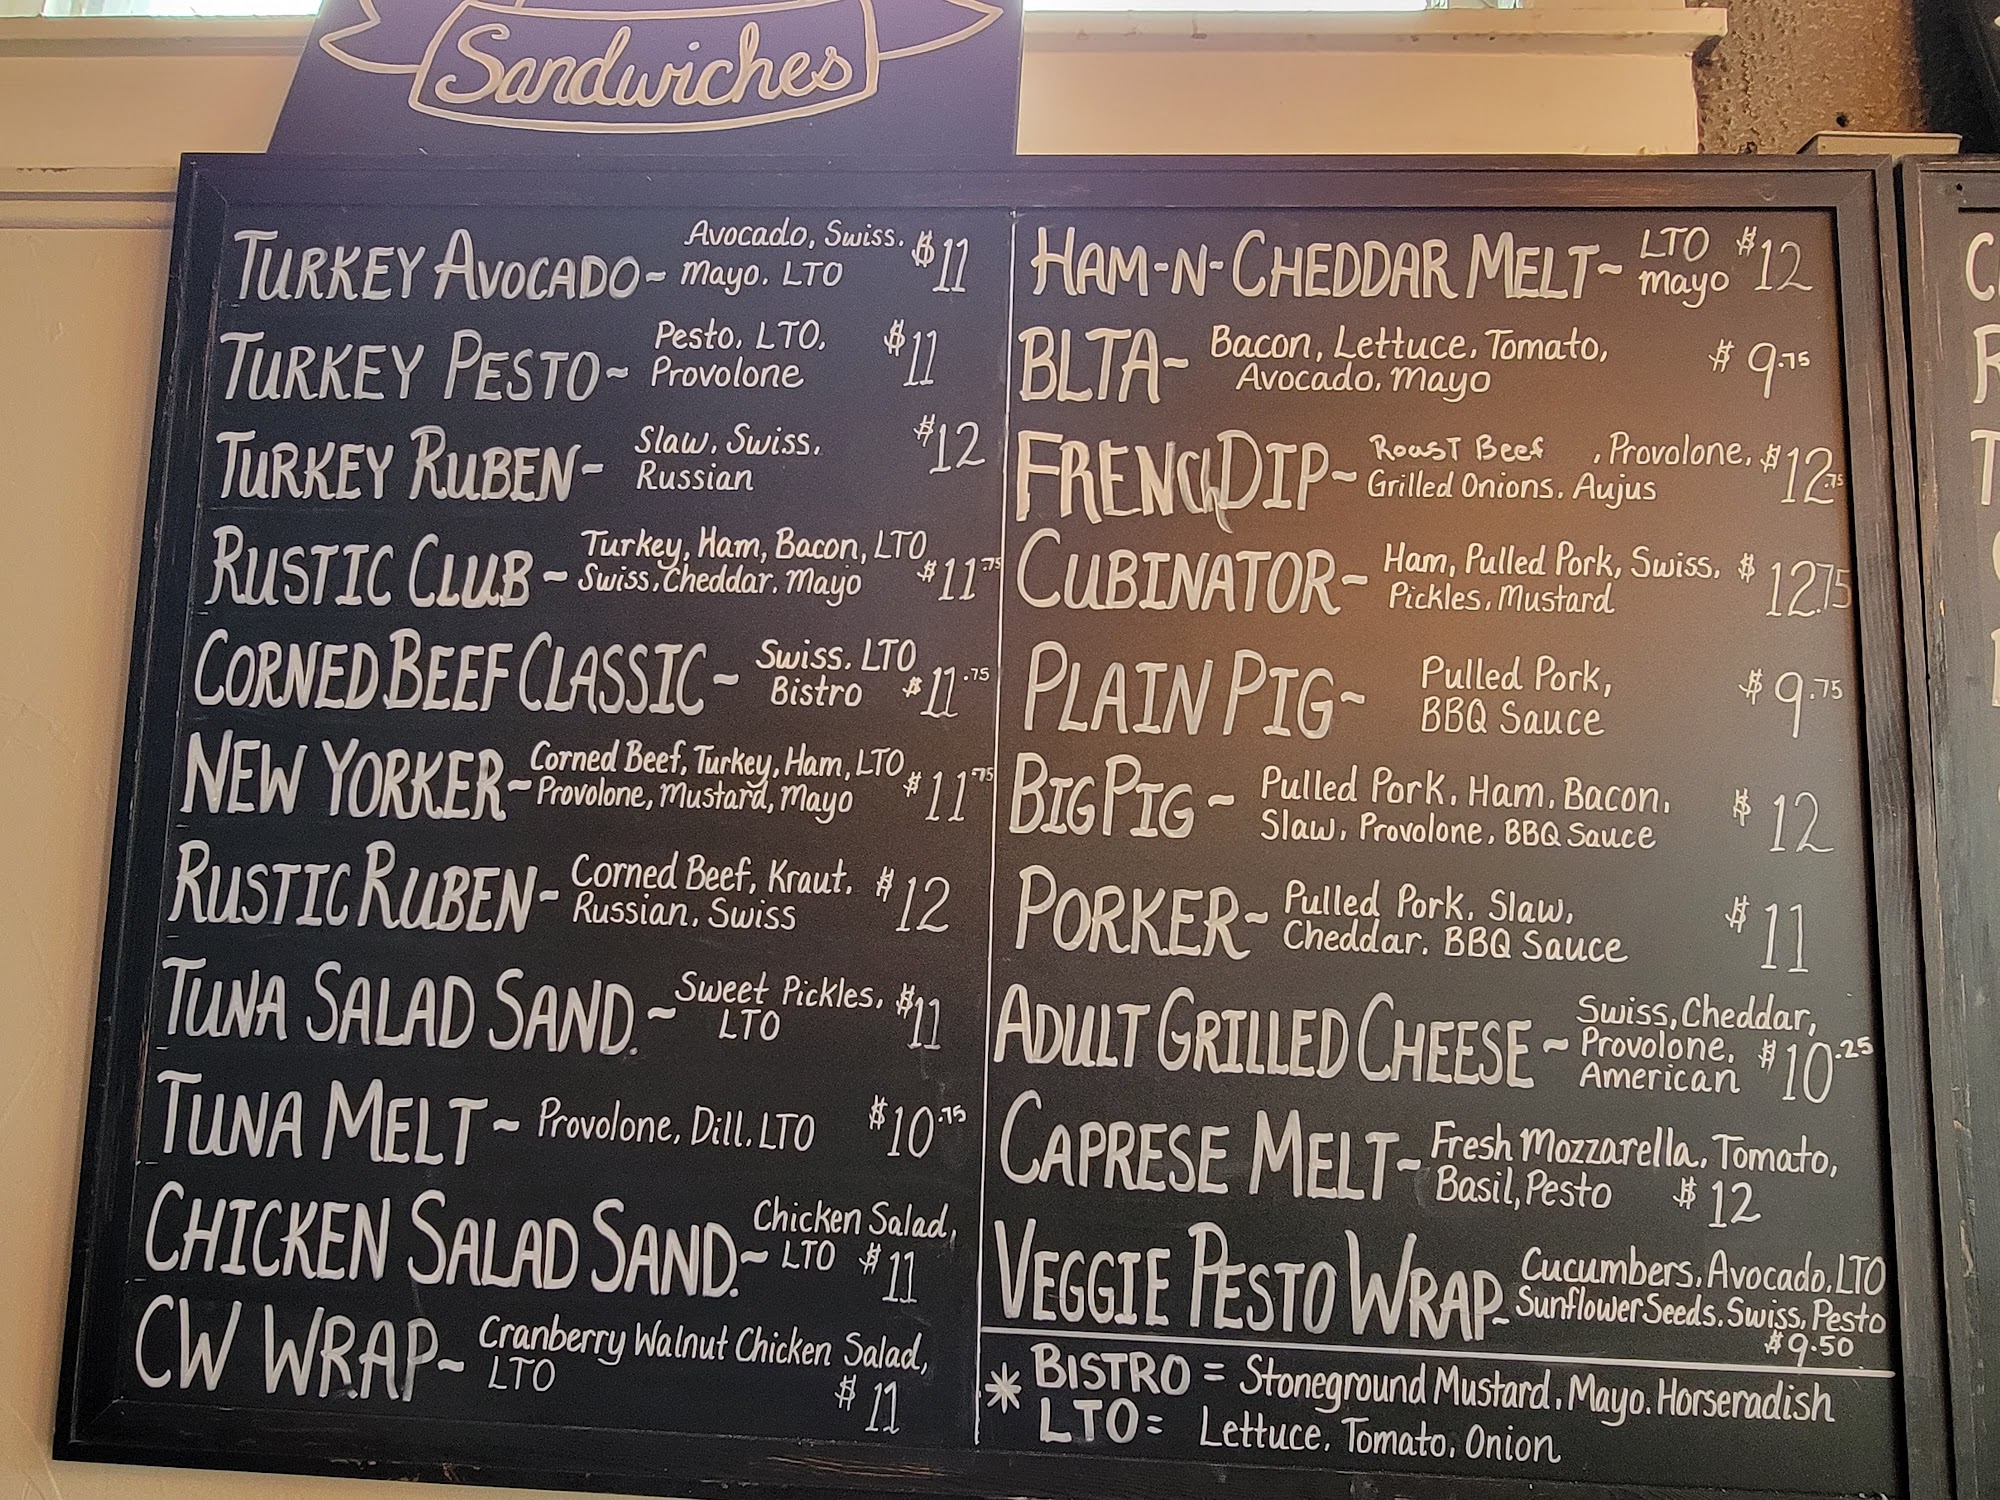 Sandwiches
TURKEY AVOCADO~ Avocado, Swiss. $11
Mayo. LTO
TURKEY PESTO~ Pesto. LTO, $11
Provolone
TURKEY RUBEN~ Slaw, Swiss. $12
Russian
RUSTIC CLUB~ Turkey, Ham, Bacon, LTO
Swiss. Cheddar. Mayo $11.75
CORNED BEEF CLASSIC~ Swiss. LTO
Bistro $11.75
NEW YORKER~ Corned Beef, Turkey, Ham, LTO
Provolone, Mustard, Mayo $11.75
RUSTIC RUBEN~ Corned Beef, Kraut. $12
Russian. Swiss
TUNA SALAD SAND.~ Sweet Pickles. $11
LTO
TUNA MELT~ Provolone. Dill. LTO $10.75
CHICKEN SALAD SAND.~ Chicken Salad,
LTO $11
CW WRAP~ Cranberry Walnut Chicken Salad,
LTO $11
HAM-N-CHEDDAR MELT~ LTO $12
Mayo
BLTA~ Bacon, Lettuce. Tomato, $9.75
Avocado. Mayo
FRENCH DIP~ Roast Beef , Provolone. $12.75
Grilled Onions. Aujus
CUBINATOR~ Ham, Pulled Pork, Swiss. $12.75
Pickles. Mustard
PLAIN PIG~ Pulled Pork, $9.75
BBQ Sauce
BIG PIG~ Pulled Pork. Ham. Bacon. $12
Slaw. Provolone. BBQ Sauce
PORKER~ Pulled Pork. Slaw, $11
Cheddar. BBQ Sauce
ADULT GRILLED CHEESE~ Swiss, Cheddar,
Provolone. $10.25
American
CAPRESE MELT~ Fresh Mozzarella. Tomato,
Basil, Pesto $12
VEGGIE PESTO WRAP~ Cucumbers. Avocado. LTO
Sunflower Seeds. Swiss, Pesto
$9.50
* BISTRO = Stoneground Mustard. Mayo. Horseradish
LTO = Lettuce. Tomato. Onion